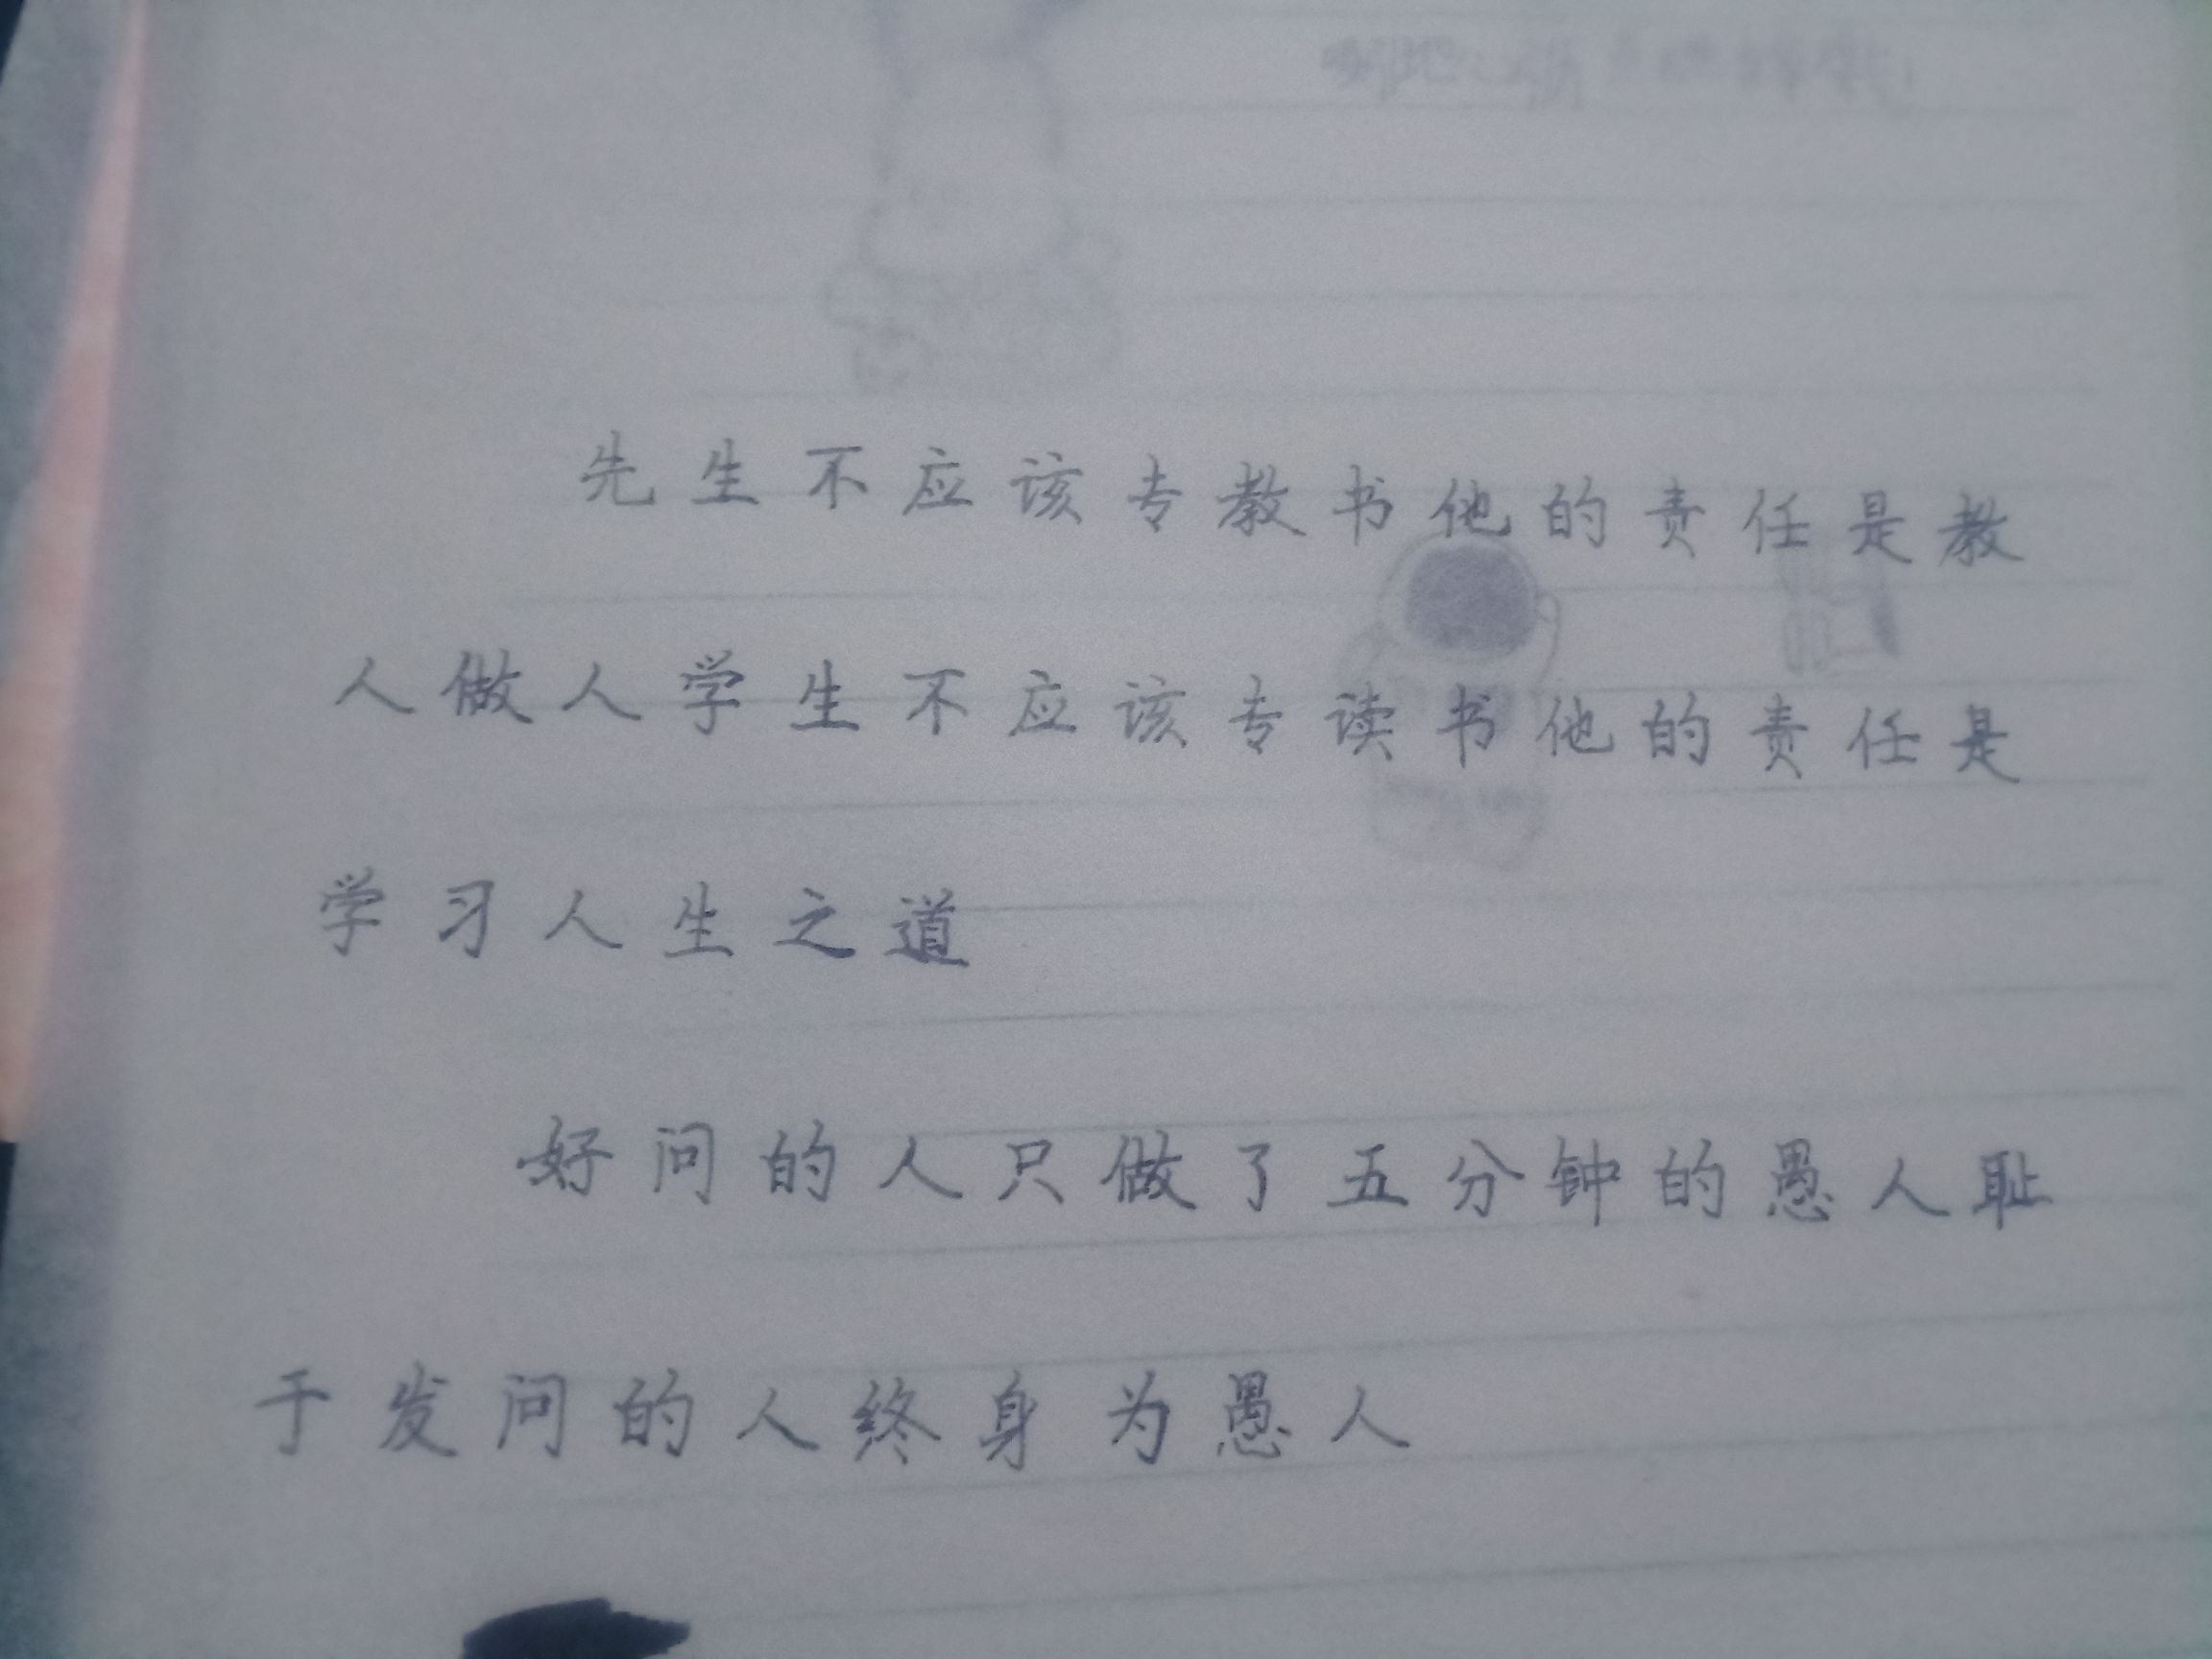 先生不应该专教书他的责任是教
人做人学生不应该专读书他的责任是
学习人生之道
好问的人只做了五分钟的愚人耻
于发问的人终身为愚人